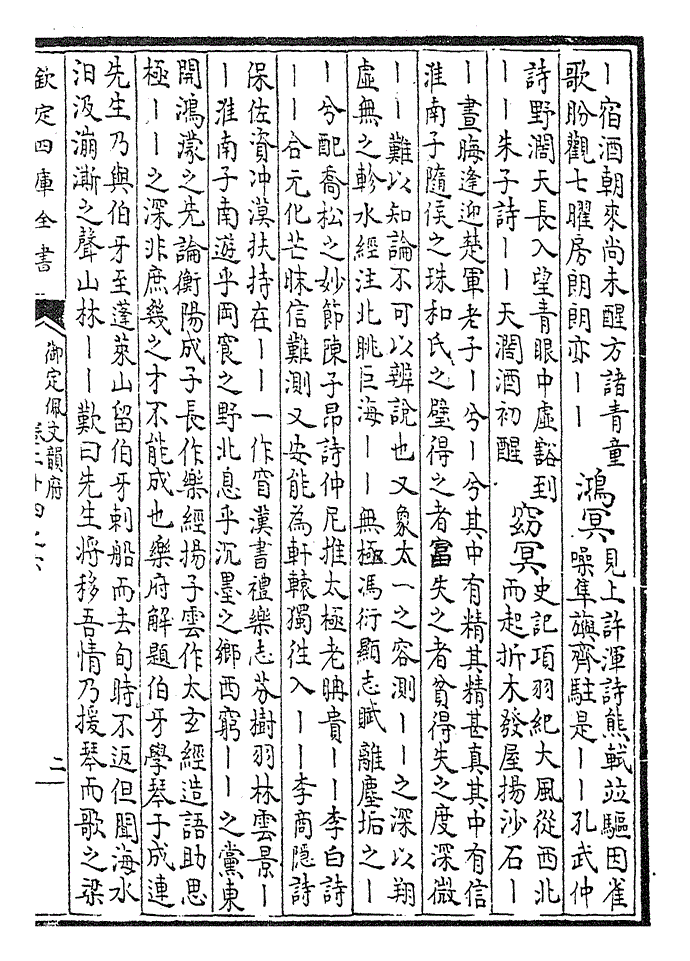 丨宿酒朝來尚未醒方諸青童
歌盼觀七曜房朗朗亦丨丨
鴻冥
見上許渾詩熊軾竝驅因雀
噪隼旟齊駐是丨丨孔武仲
詩野濶天長入望青眼中虛豁到
丨丨朱子詩丨丨天濶酒初醒
窈冥
史記項羽紀大風從西北
而起折木發屋揚沙石丨
丨晝晦逢迎楚軍老子丨兮丨兮其中有精其精甚真其中有信
淮南子隨侯之珠和氏之璧得之者富失之者貧得失之度深微
丨丨難以知論不可以辨說也又象太一之容測丨丨之深以翔
虛無之軫水經注北眺巨海丨丨無極馮衍顯志賦離塵垢之丨
丨兮配喬松之妙節陳子昂詩仲尼推太極老聃貴丨丨李白詩
丨丨合元化茫昧信難測又安能為軒轅獨徃入丨丨李商隱詩
保佐資冲漠扶持在丨丨一作窅漢書禮樂志芬樹羽林雲景丨
丨淮南子南遊乎岡㝗之野北息乎沉墨之鄉西窮丨丨之黨東
開鴻濛之先論衡陽成子長作樂經揚子雲作太玄經造語助思
極丨丨之深非庶幾之才不能成也樂府解題伯牙學琴于成連
先生乃與伯牙至蓬萊山留伯牙刺船而去旬時不返但聞海水
汨汲漰澌之聲山林丨丨歎曰先生將移吾情乃援琴而歌之梁
欽定四庫全書
御定佩文韻府
卷二十四之六
二